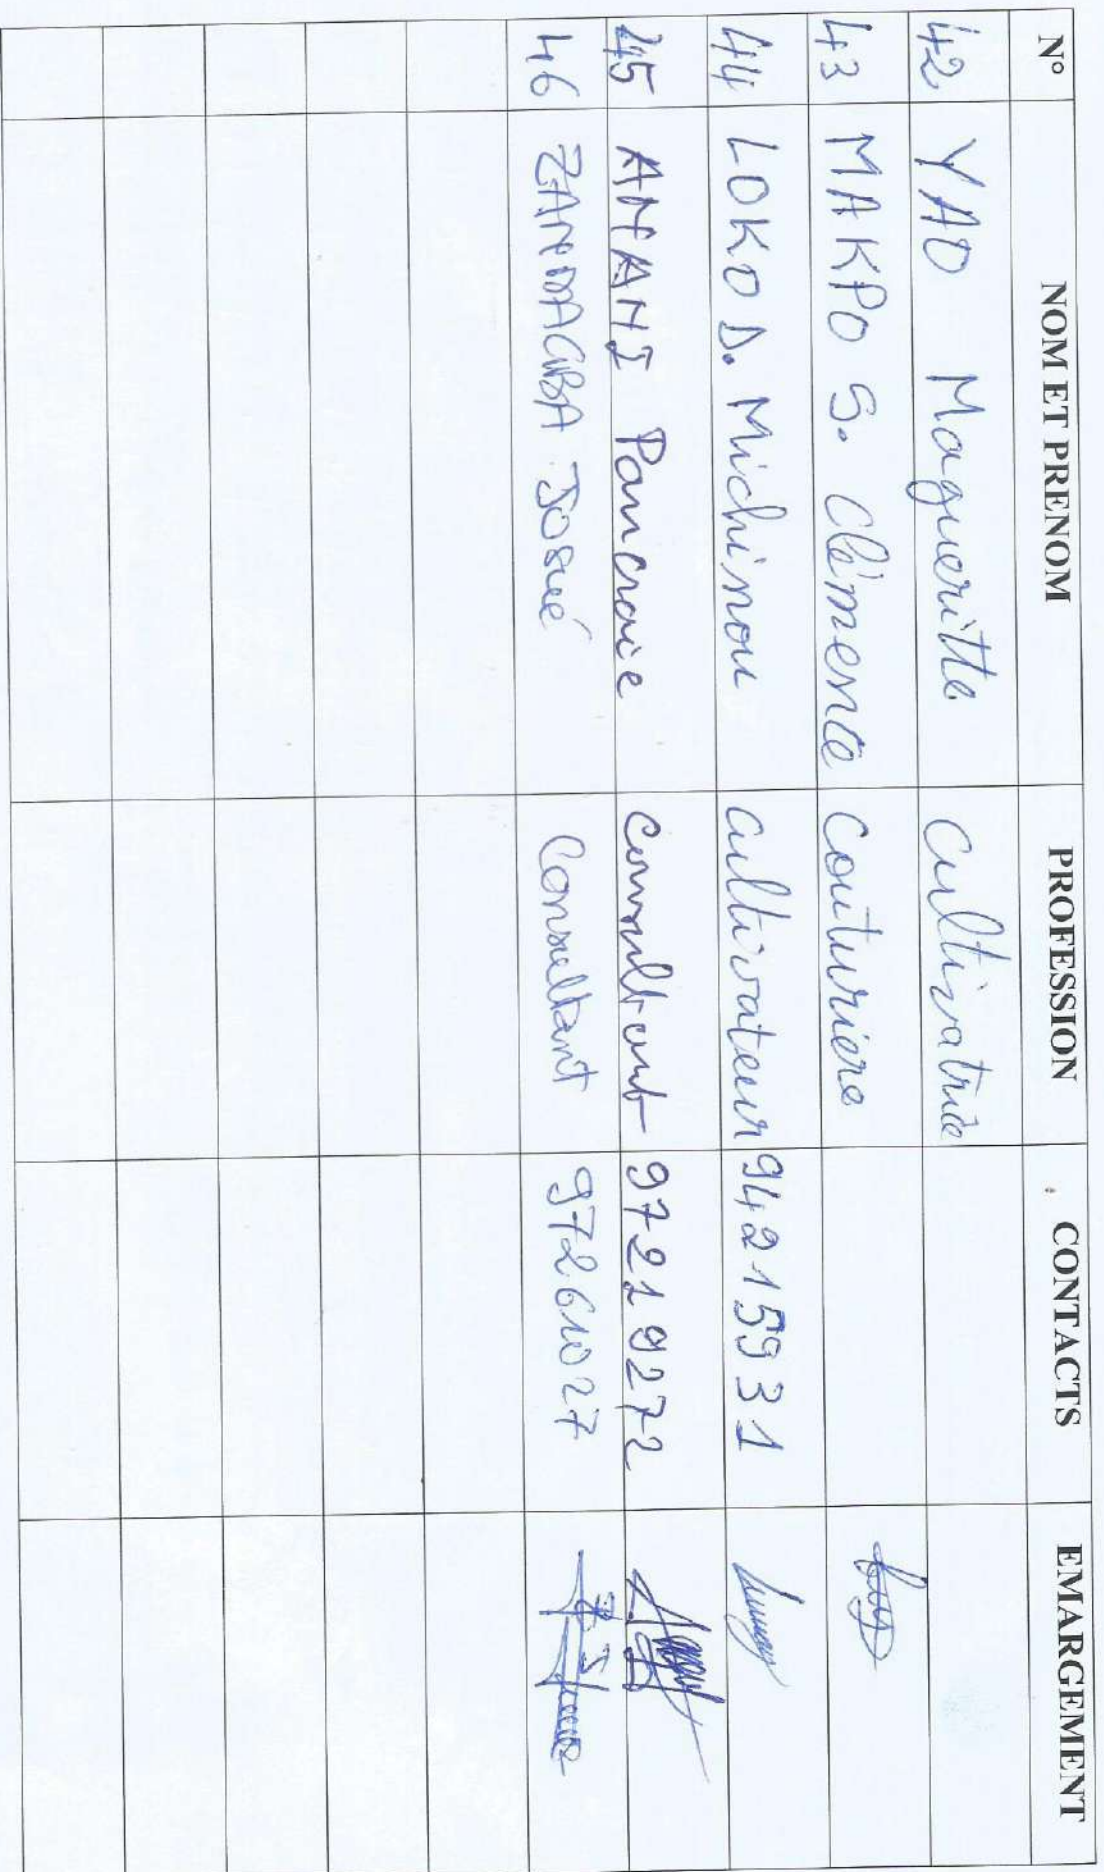 N° NOM ET PRENOM PROFESSION CONTACTS EMARGEMENT
42 YAO Magueritte Cultivatrice
43 MAKPO S. Clémence Couturière
44 LOKO D. Michinou Cultivateur 94215931
45 ANANI Pancraie Consultant 97219272
46 ZANDAGBA Josué Consultant 97261027